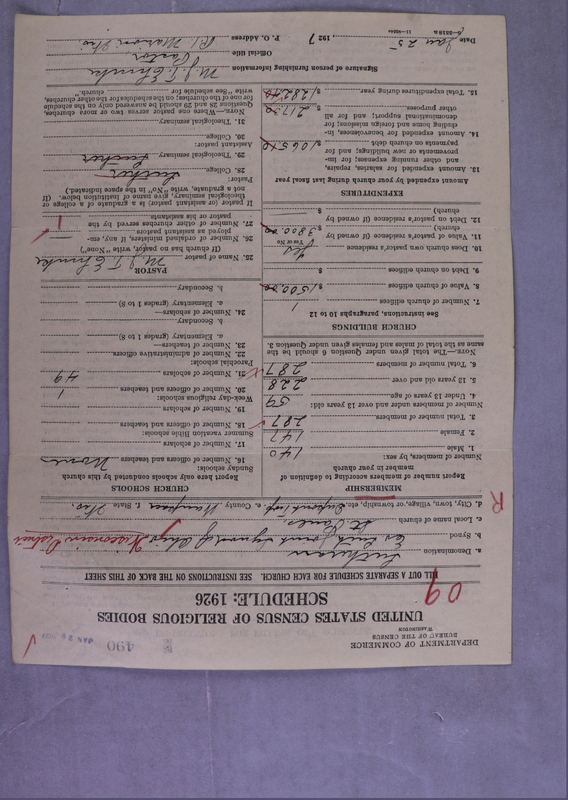 DEPARTMENT OF COMMERCE
BUREAU OF THE CENSUS
WASHINGTON
490
JAN 26
UNITED STATES CENSUS OF RELIGIOUS BODIES
SCHEDULE: 1926
09
FILL OUT A SEPARATE SCHEDULE FOR EACH CHURCH. SEE INSTRUCTIONS ON THE BACK OF THIS SHEET
a. Denomination Lutheran
b. Synod Ev Luth Joint Synod of Ohio Wisconsin District
c. Local name of church St. Pauls
d. City, town, village, or township, etc. Dupont twp e. County Waupaca f. State Wis.
R
MEMBERSHIP
Report number of members according to definition of member in your church
Number of members, by sex:
1. Male 140
2. Female 147
3. Total number of members 287
Number of members under and over 13 years old:
4. Under 13 years of age 59
5. 13 years old and over 228
6. Total number of members 287
NOTE.—The total given under Question 6 should be the same as the total of males and females given under Question 3.
CHURCH BUILDINGS
See instructions, paragraphs 10 to 12
7. Number of church edifices 1
8. Value of church edifices $1500.00
9. Debt on church edifices $
10. Does church own pastor's residence Yes
Yes or No
11. Value of pastor's residence (if owned by church) $3800.00
12. Debt on pastor's residence (if owned by church) $
EXPENDITURES
Amount expended by your church during last fiscal year
13. Amount expended for salaries, repairs, and other running expenses; for improvements or new buildings; and for payments on church debt $1065.10
14. Amount expended for benevolences, including home and foreign missions; for denominational support; and for all other purposes $
15. Total expenditures during year $
CHURCH SCHOOLS
Report here only schools conducted by this church
Sunday schools:
16. Number of officers and teachers None
17. Number of scholars
Summer vacation Bible schools:
18. Number of officers and teachers
19. Number of scholars
Week-day religious schools:
20. Number of officers and teachers 1
21. Number of scholars 49
Parochial schools:
22. Number of administrative officers
23. Number of teachers—
a. Elementary (grades 1 to 8)
b. Secondary
24. Number of scholars—
a. Elementary (grades 1 to 8)
b. Secondary
PASTOR
25. Name of pastor
(If church has no pastor, write "None")
26. Number of ordained ministers, if any, employed as assistant pastors
27. Number of other churches served by the pastor or his assistants 1
If pastor (or assistant pastor) is a graduate of a college or theological seminary, give name of institution below. (If not a graduate, write "No" in the space indicated.)
Pastor:
28. College Luther
29. Theological seminary Luther
Assistant pastor:
30. College
31. Theological seminary
NOTE.—When one pastor serves two or more churches, Questions 28 and 29 should be answered only on the schedule for one of the churches; on the schedules for the other churches, write "See schedule for church."
Signature of person furnishing information
Official title Pastor
P. O. Address R1 Marion Wis.
Date Jan 25, 1927